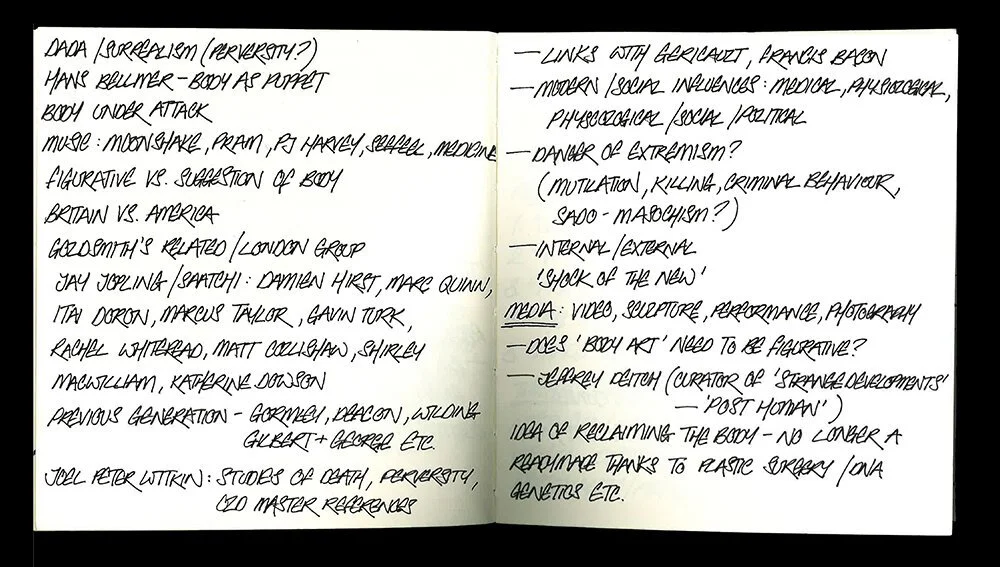 DADA / SURREALISM (PERVERSITY?)
HANS BELLMER - BODY AS PUPPET
BODY UNDER ATTACK
MUSIC : MOONSHAKE, PRAM, PJ HARVEY, SEEFEEL, MEDICINE
FIGURATIVE VS. SUGGESTION OF BODY
BRITAIN VS. AMERICA
GOLDSMITH'S RELATED / LONDON GROUP
JAY JOPLING / SAATCHI : DAMIEN HIRST, MARC QUINN,
ITAI DORON, MARCUS TAYLOR, GAVIN TURK,
RACHEL WHITEREAD, MATT COLLISHAW, SHIRLEY
MACWILLIAM, KATHERINE DOWSON
PREVIOUS GENERATION - GORMLEY, DEACON, WILDING
GILBERT + GEORGE ETC.
JOEL PETER WITKIN : STUDIES OF DEATH, PERVERSITY,
OLD MASTER REFERENCES
— LINKS WITH GERICAULT, FRANCIS BACON
— MODERN / SOCIAL INFLUENCES : MEDICAL, PHYSIOLOGICAL,
PHYSCOLOGICAL / SOCIAL / POLITICAL
— DANGER OF EXTREMISM?
(MUTILATION, KILLING, CRIMINAL BEHAVIOUR,
SADO - MASOCHISM?)
— INTERNAL / EXTERNAL
'SHOCK OF THE NEW'
MEDIA : VIDEO, SCULPTURE, PERFORMANCE, PHOTOGRAPHY
— DOES 'BODY ART' NEED TO BE FIGURATIVE?
— JEFFREY DEITCH (CURATOR OF 'STRANGE DEVELOPMENTS'
— 'POST HUMAN')
IDEA OF RECLAIMING THE BODY - NO LONGER A
READYMADE THANKS TO PLASTIC SURGERY / DNA
GENETICS ETC.